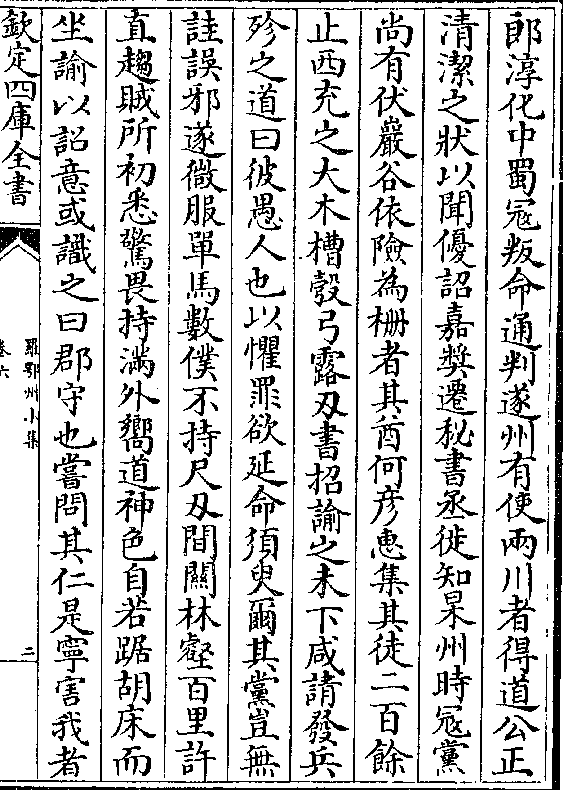 郎淳化中蜀冦叛命通判遂州有使兩川者得道公正
清潔之狀以聞優詔嘉奬遷秘書丞徙知果州時冦黨
尚有伏巖谷依險為栅者其酋何彦惠集其徒二百餘
止西充之大木槽彀弓露刄書招諭之未下咸請發兵
殄之道曰彼愚人也以懼罪欲延命須臾爾其黨豈無
詿誤邪遂微服單馬數僕不持尺刄間關林壑百里許
直趨賊所初悉驚畏持滿外嚮道神色自若踞胡床而
坐諭以詔意或識之曰郡守也嘗問其仁是寧害我者
欽定四庫全書
羅鄂州小集
卷六
二